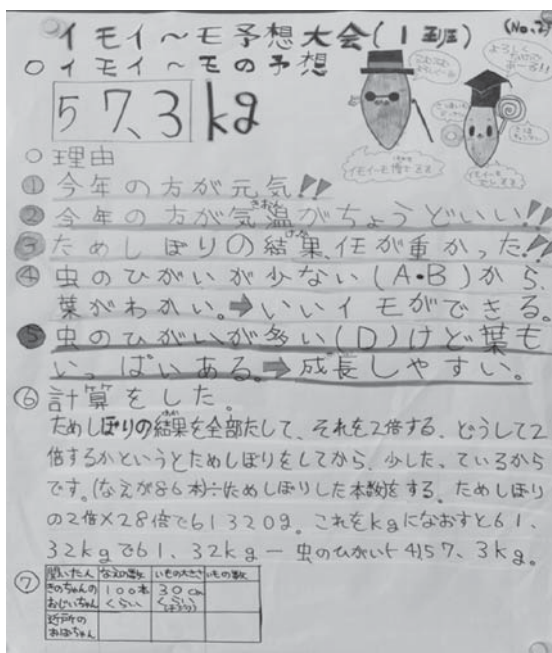 イモイ～モ予想大会(1班)
(No.2)
○イモイ～モの予想
57、3kg
○理由
①今年の方が元気!!
②今年の方が気温がちょうどいい!!
③ためしぼりの結果、イモが重かった!!
④虫のひがいが少ない(A・B)から、
葉がわかい。➡いいイモができる。
⑤虫のひがいが多い(D)けど葉も
いっぱいある。➡成長しやすい。
⑥計算をした。
ためしぼりの結果を全部たして、それを2倍する、どうして2
倍するかというとためしぼりをしてから、少したっているから
です。(なえが86本)÷ためしぼりした本数をする。ためしぼり
の2倍×28倍で61320g。これをkgになおすと61、
32kgで61、32kg－虫のひがい(-4)57、3kg。
⑦
聞いた人 なえの数 いもの大きさ いもの数
きのちゃんのおじいちゃん 100本くらい 30cmくらい
近所のおばちゃん